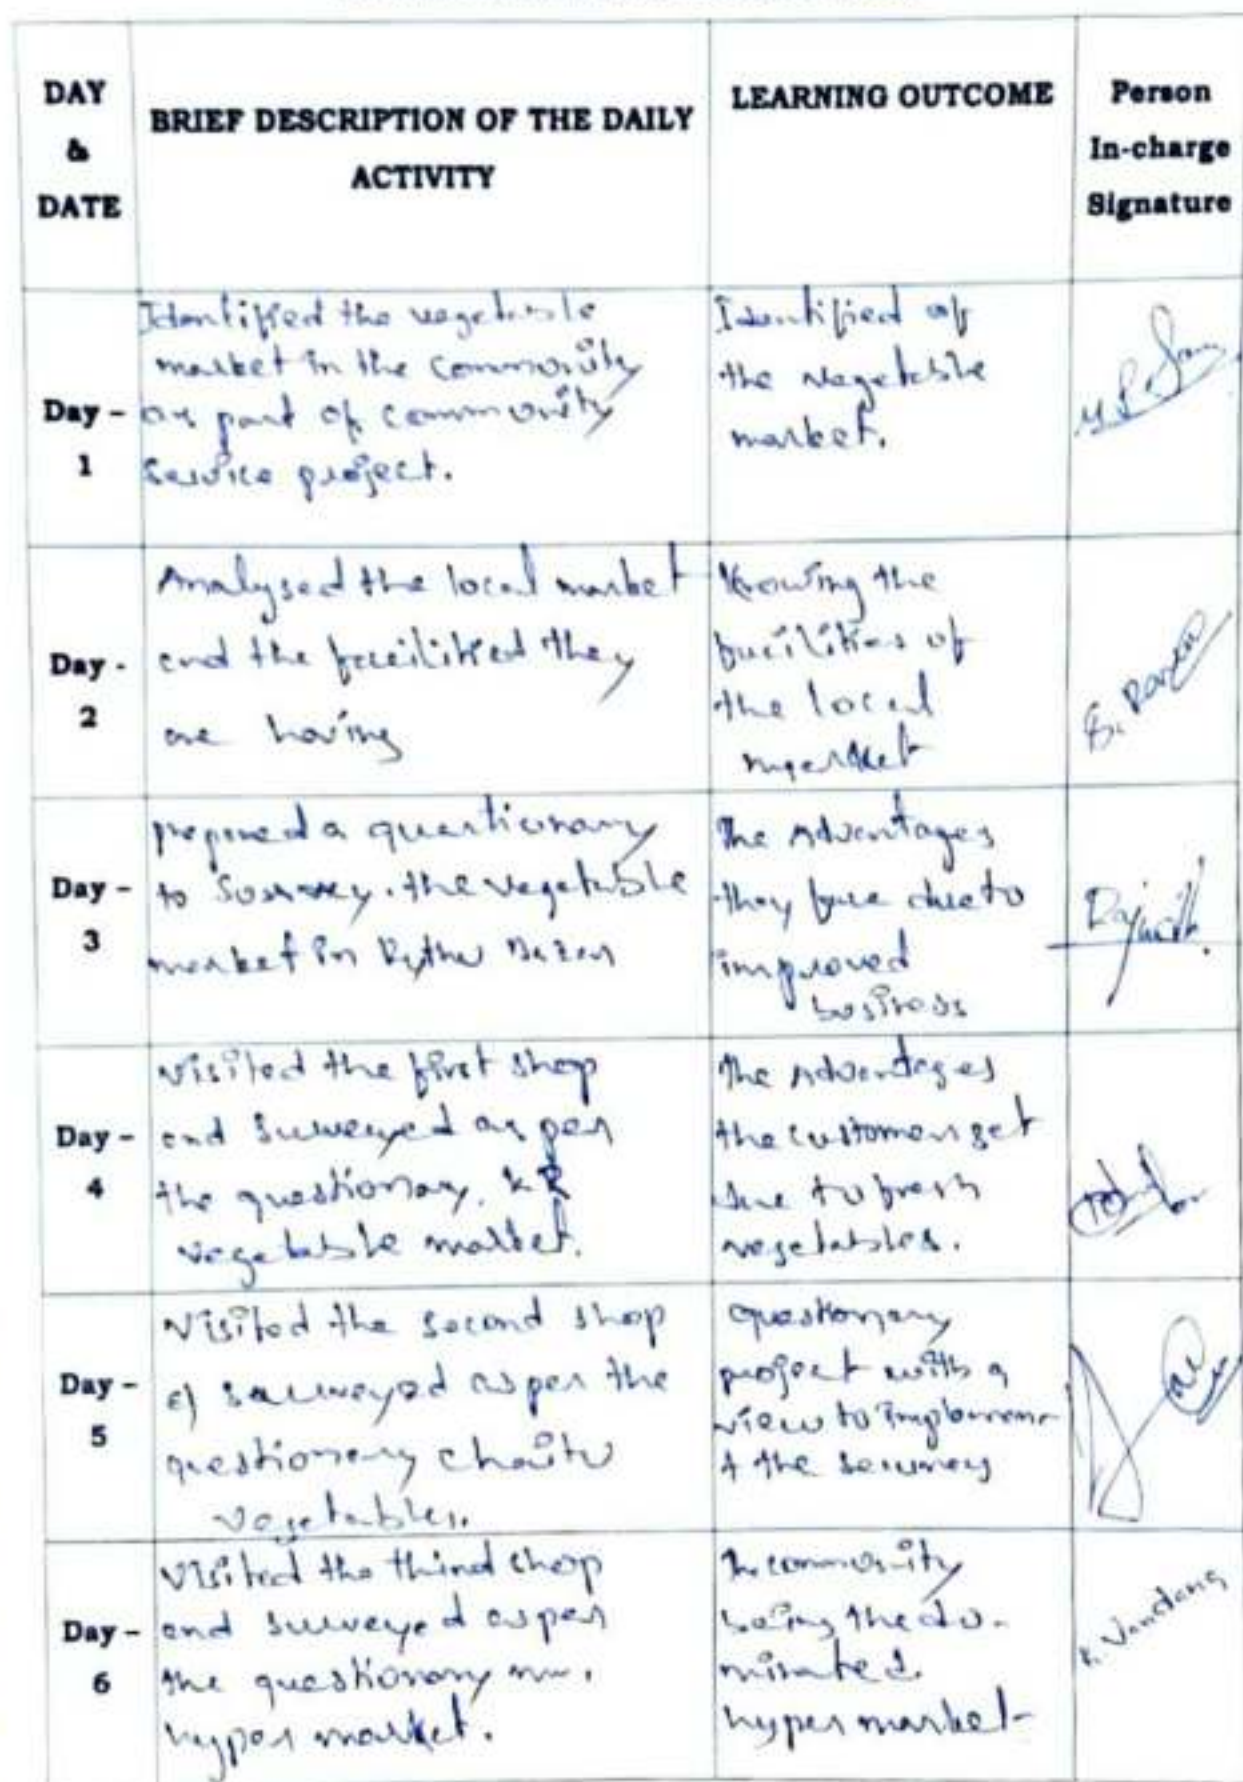 DAY
&
DATE
BRIEF DESCRIPTION OF THE DAILY
ACTIVITY
LEARNING OUTCOME
Person
In-charge
Signature
Day -
1
Identified the vegetable
market in the community
as part of community
service project.
Identified of
the vegetable
market.
Day -
2
Analysed the local market
and the they
are having
Knowing the
facilities of
the local
market
Day -
3
prepared a questionary
to the vegetable
market in Rythu Bazar
The Advantages
they face due to
improved
business
Rajnith.
Day -
4
visited the first shop
and surveyed as per
the questionary. KR
vegetable market.
The Advantages
the customers get
due to fresh
vegetables.
Day -
5
Visited the second shop
surveyed as per the
questionary
vegetables.
questionary
project with a
view to
t the
Day -
6
Visited the third shop
and surveyed as per
the questionary
hyper market.
community
being the do-
minated
hyper market
K. Vandana